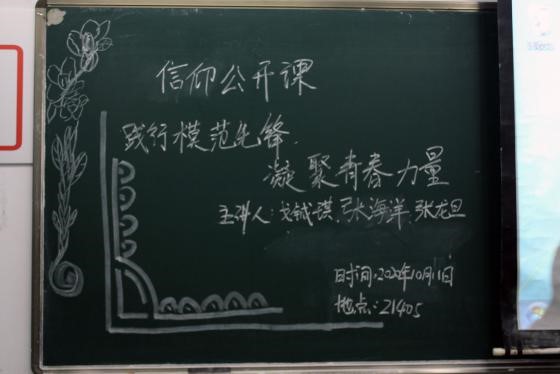 信仰公开课
践行模范先锋.
凝聚青春力量
主讲人:戈铖琪,张海洋,张龙旦
时间:2022年10月11日
地点:21405